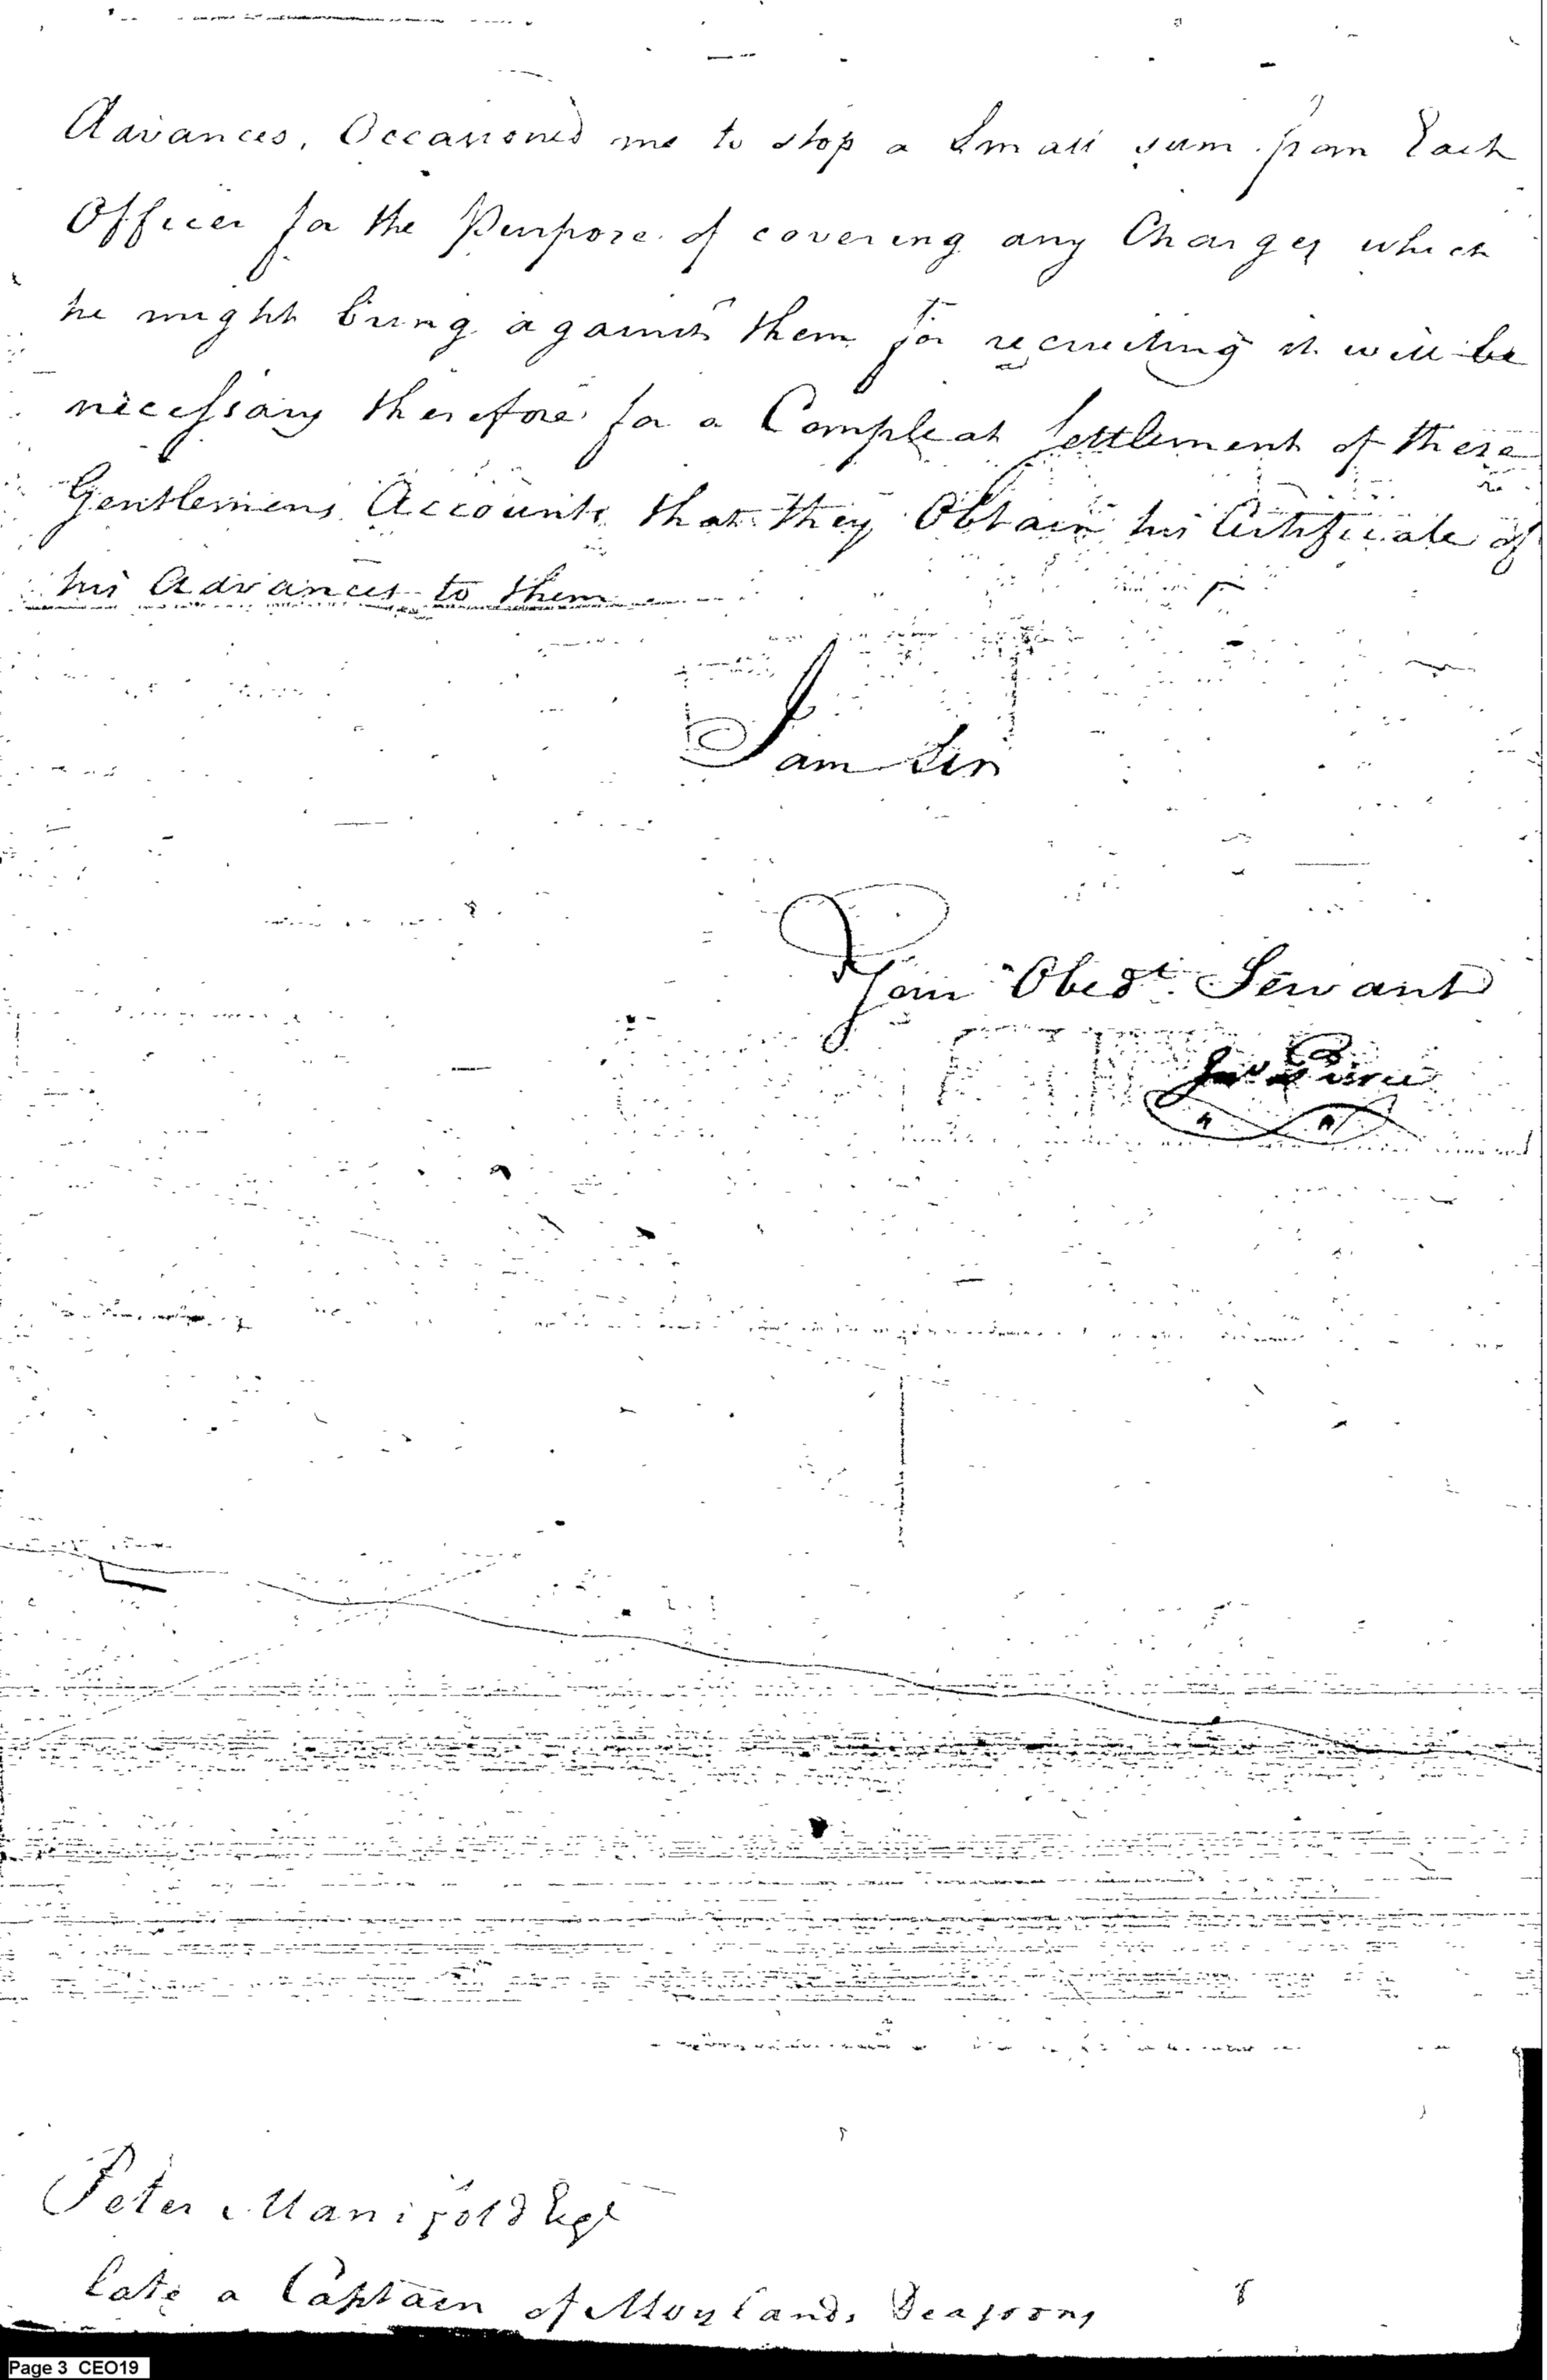 Advances, Occasioned me to stop a Small sum from Each
Officer for the Purpose of covering any Charges which
he might bring against them for recruiting it will be
necessary therefore for a Compleat Settlement of these
Gentlemens Accounts that they Obtain his Certificate of
his Advances to them
I am Sir
Your Obedt Servant
Jno Pierce
Peter Manifold Esqr
late a Captain of Moylands Dragoons
Page 3 CEO19